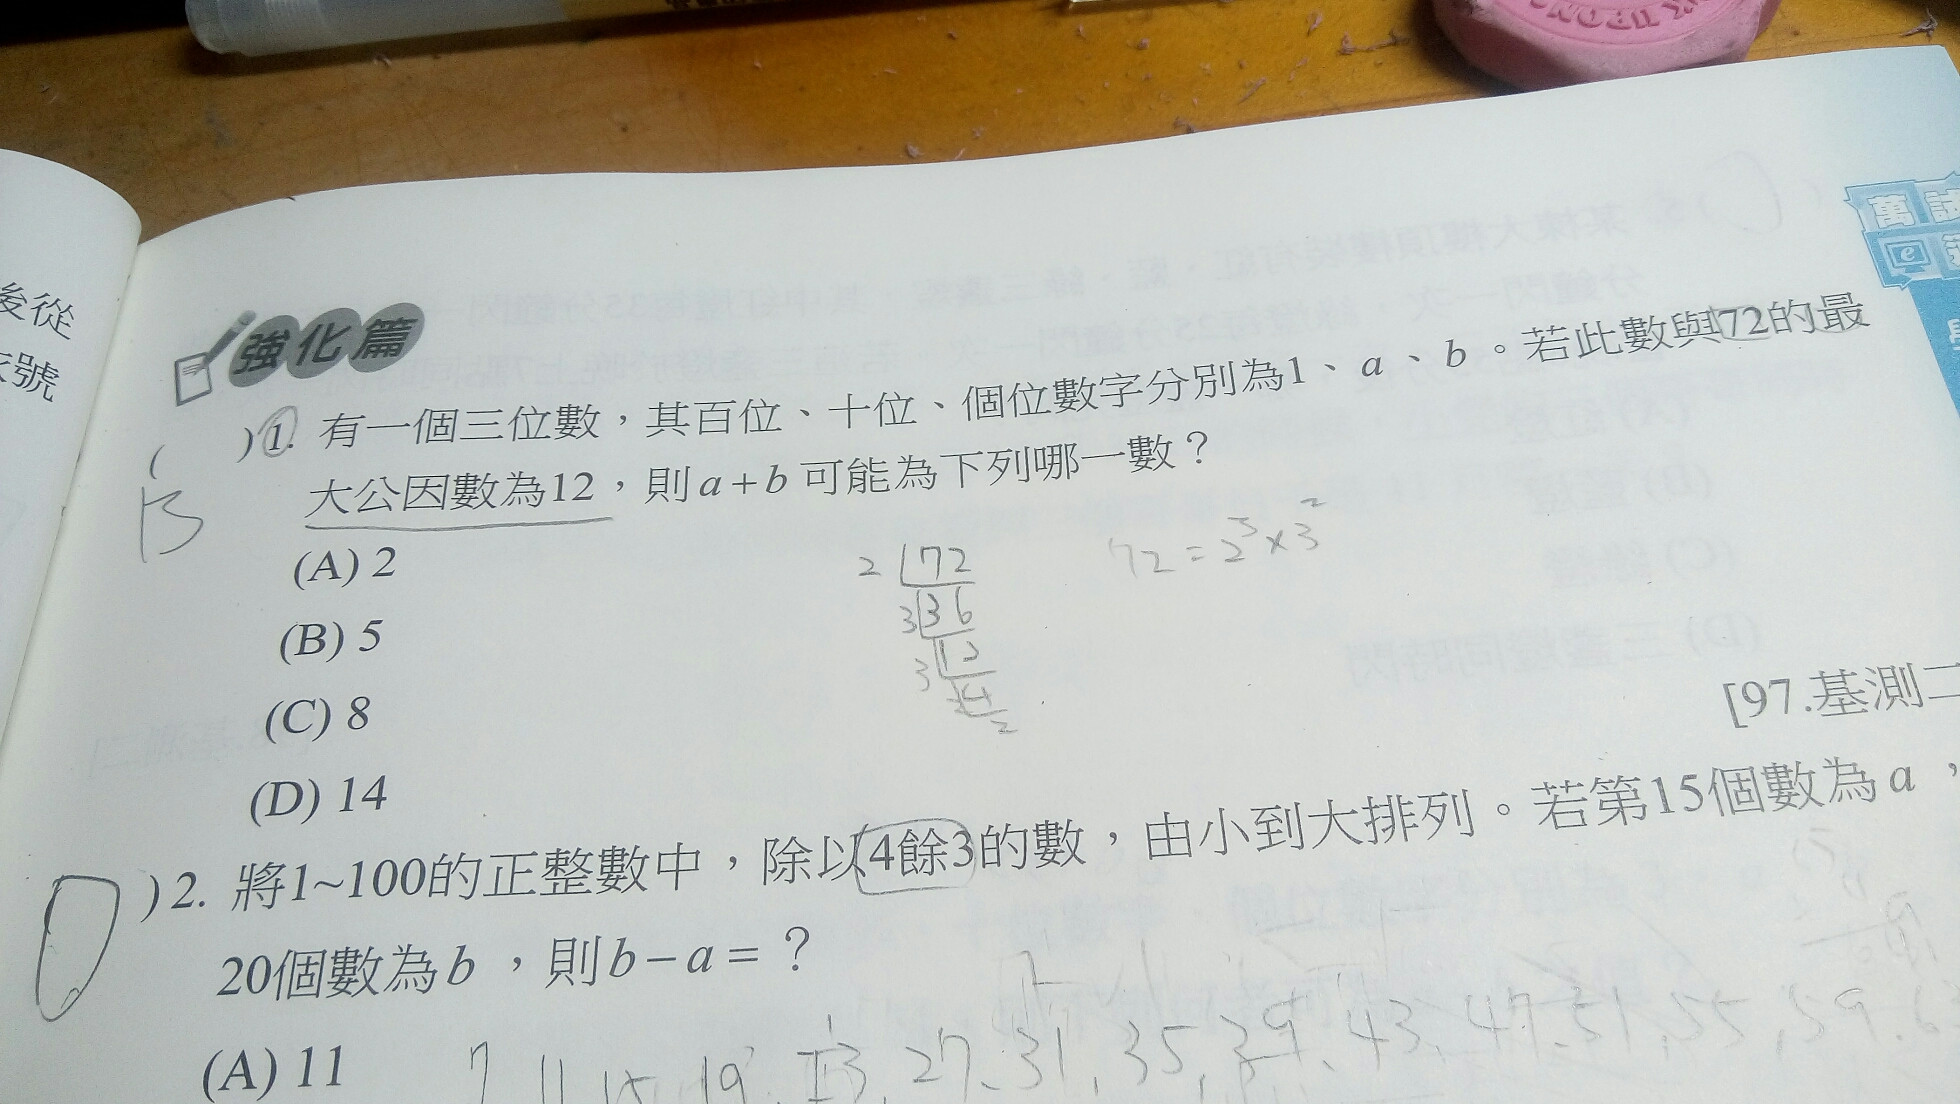 後從
號
強化篇
( )1. 有一個三位數，其百位、十位、個位數字分別為1、a、b。若此數與72的最
大公因數為12，則a+b可能為下列哪一數？
B
(A) 2
(B) 5
(C) 8
(D) 14
2 72
3 36
3 12
4
2
72=2³×3²
[97.基測二
)2. 將1~100的正整數中，除以4餘3的數，由小到大排列。若第15個數為a，
20個數為b，則b－a=？
(A) 11
7 11 15 19、23、27、31、35、39、43、47、51、55、59、6
萬試
e